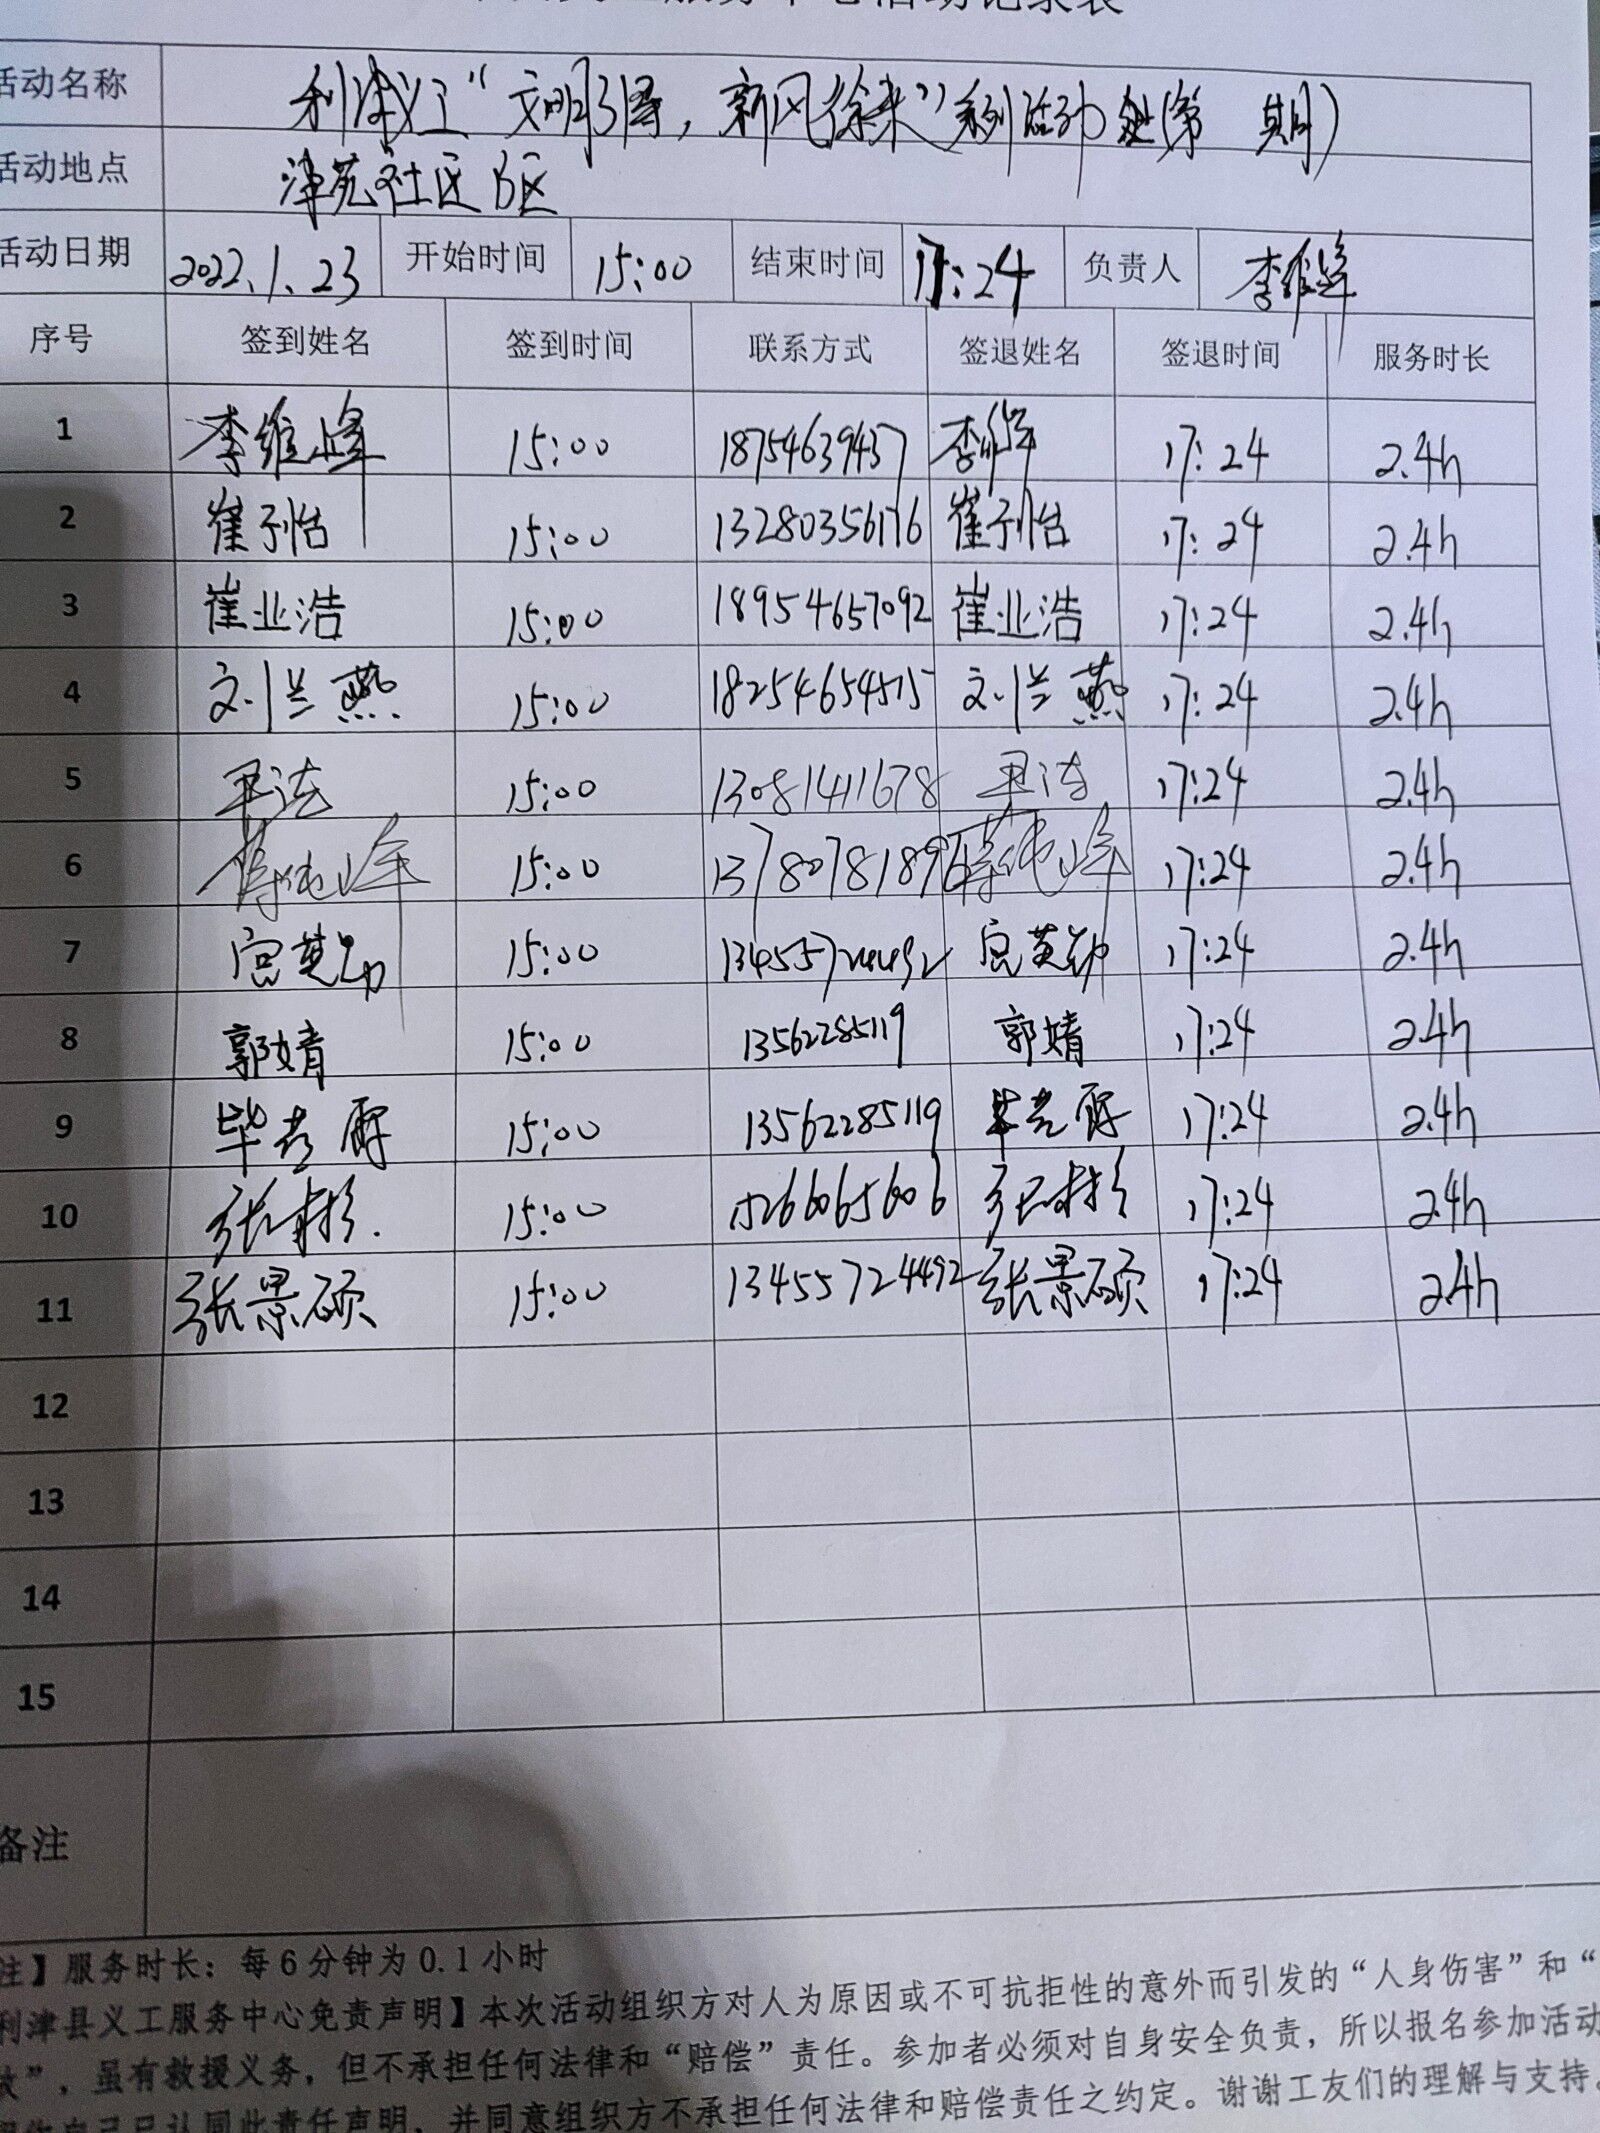 服务中心活动记录表
活动名称 利津义工“文明引导,新风徐来”系列活动 (第 期)
活动地点 津苑社区B区
活动日期 2022.1.23 开始时间 15:00 结束时间 17:24 负责人 李维峰
序号 签到姓名 签到时间 联系方式 签退姓名 签退时间 服务时长
1 李维峰 15:00 18754639437 李维峰 17:24 2.4h
2 崔子怡 15:00 13280356176 崔子怡 17:24 2.4h
3 崔业浩 15:00 18954657092 崔业浩 17:24 2.4h
4 刘兰燕 15:00 18254654515 刘兰燕 17:24 2.4h
5 15:00 13081411678 17:24 2.4h
6 15:00 13780781896 17:24 2.4h
7 宫英勋 15:00 13455724492 宫英勋 17:24 2.4h
8 郭婧 15:00 13562285119 郭婧 17:24 2.4h
9 15:00 13562285119 17:24 2.4h
10 张彬彬 15:00 15266065606 张彬彬 17:24 2.4h
11 张景硕 15:00 13455724492 张景硕 17:24 2.4h
12
13
14
15
备注
注】服务时长:每6分钟为0.1小时
利津县义工服务中心免责声明】本次活动组织方对人为原因或不可抗拒性的意外而引发的“人身伤害”和“
”,虽有救援义务,但不承担任何法律和“赔偿”责任。参加者必须对自身安全负责,所以报名参加活动
自己已认同此责任声明,并同意组织方不承担任何法律和赔偿责任之约定。谢谢工友们的理解与支持。